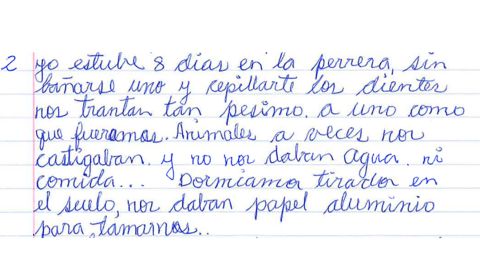 2 yo estube 8 dias en la perrera, sin
bañarse uno y cepillarte los dientes
nos trantan tan pesimo. a uno como
que fueramos. Animales a veces nos
castigaban. y no nos daban agua. ni
comida... Dormiamos tirados en
el suelo, nos daban papel aluminio
para, tamarnos..